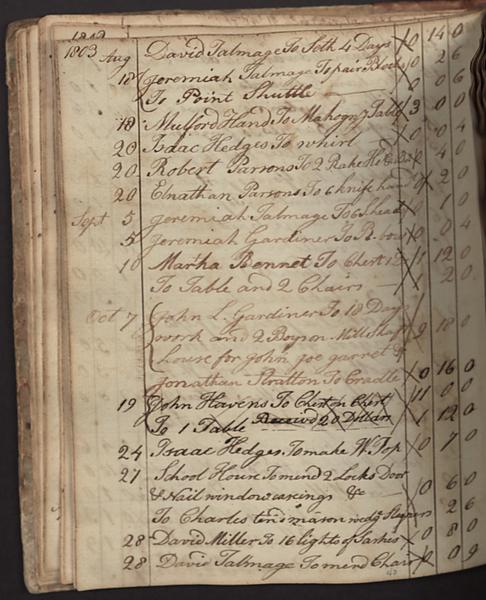 1803 Aug David Talmage To Seth 4 Days 0 14 0
18 Jeremiah Talmage To pair Blocks 0 2 6
To Point Shuttle 0 0 6
18 Mulford Hand To Mahogny Table 3 0 0
20 Isaac Hedges To whirl 0 0 4
20 Robert Parsons To 2 Rake H 0 4 0
20 Elnathan Parsons To 6 knife hand 0 2 0
Sept 5 Jeremiah Talmage To 0 1 0
5 Jeremiah Gardiner To R. bow 0 0 4
10 Martha Bennet To Chest 1 12 0
To Table and 2 Chairs 2 0
Oct 7 John L. Gardiner To 18 Days
work and 2 Boys on Mill 9 18 0
house for john joe garret &
Jonathan Stratton To Cradle 0 16 0
19 John Havens To Chest on Chest 11 0 0
To 1 Table Received 20 Dollars 1 12 0
24 Isaac Hedges To make W. Top 0 7 0
27 School House To mend 2 Locks Door
& Nail window casings &c 0 6 0
To Charles tend mason 2 6
28 David Miller To 16 lights of Sashes 0 8 0
28 David Talmage To mend Chair 0 0 9